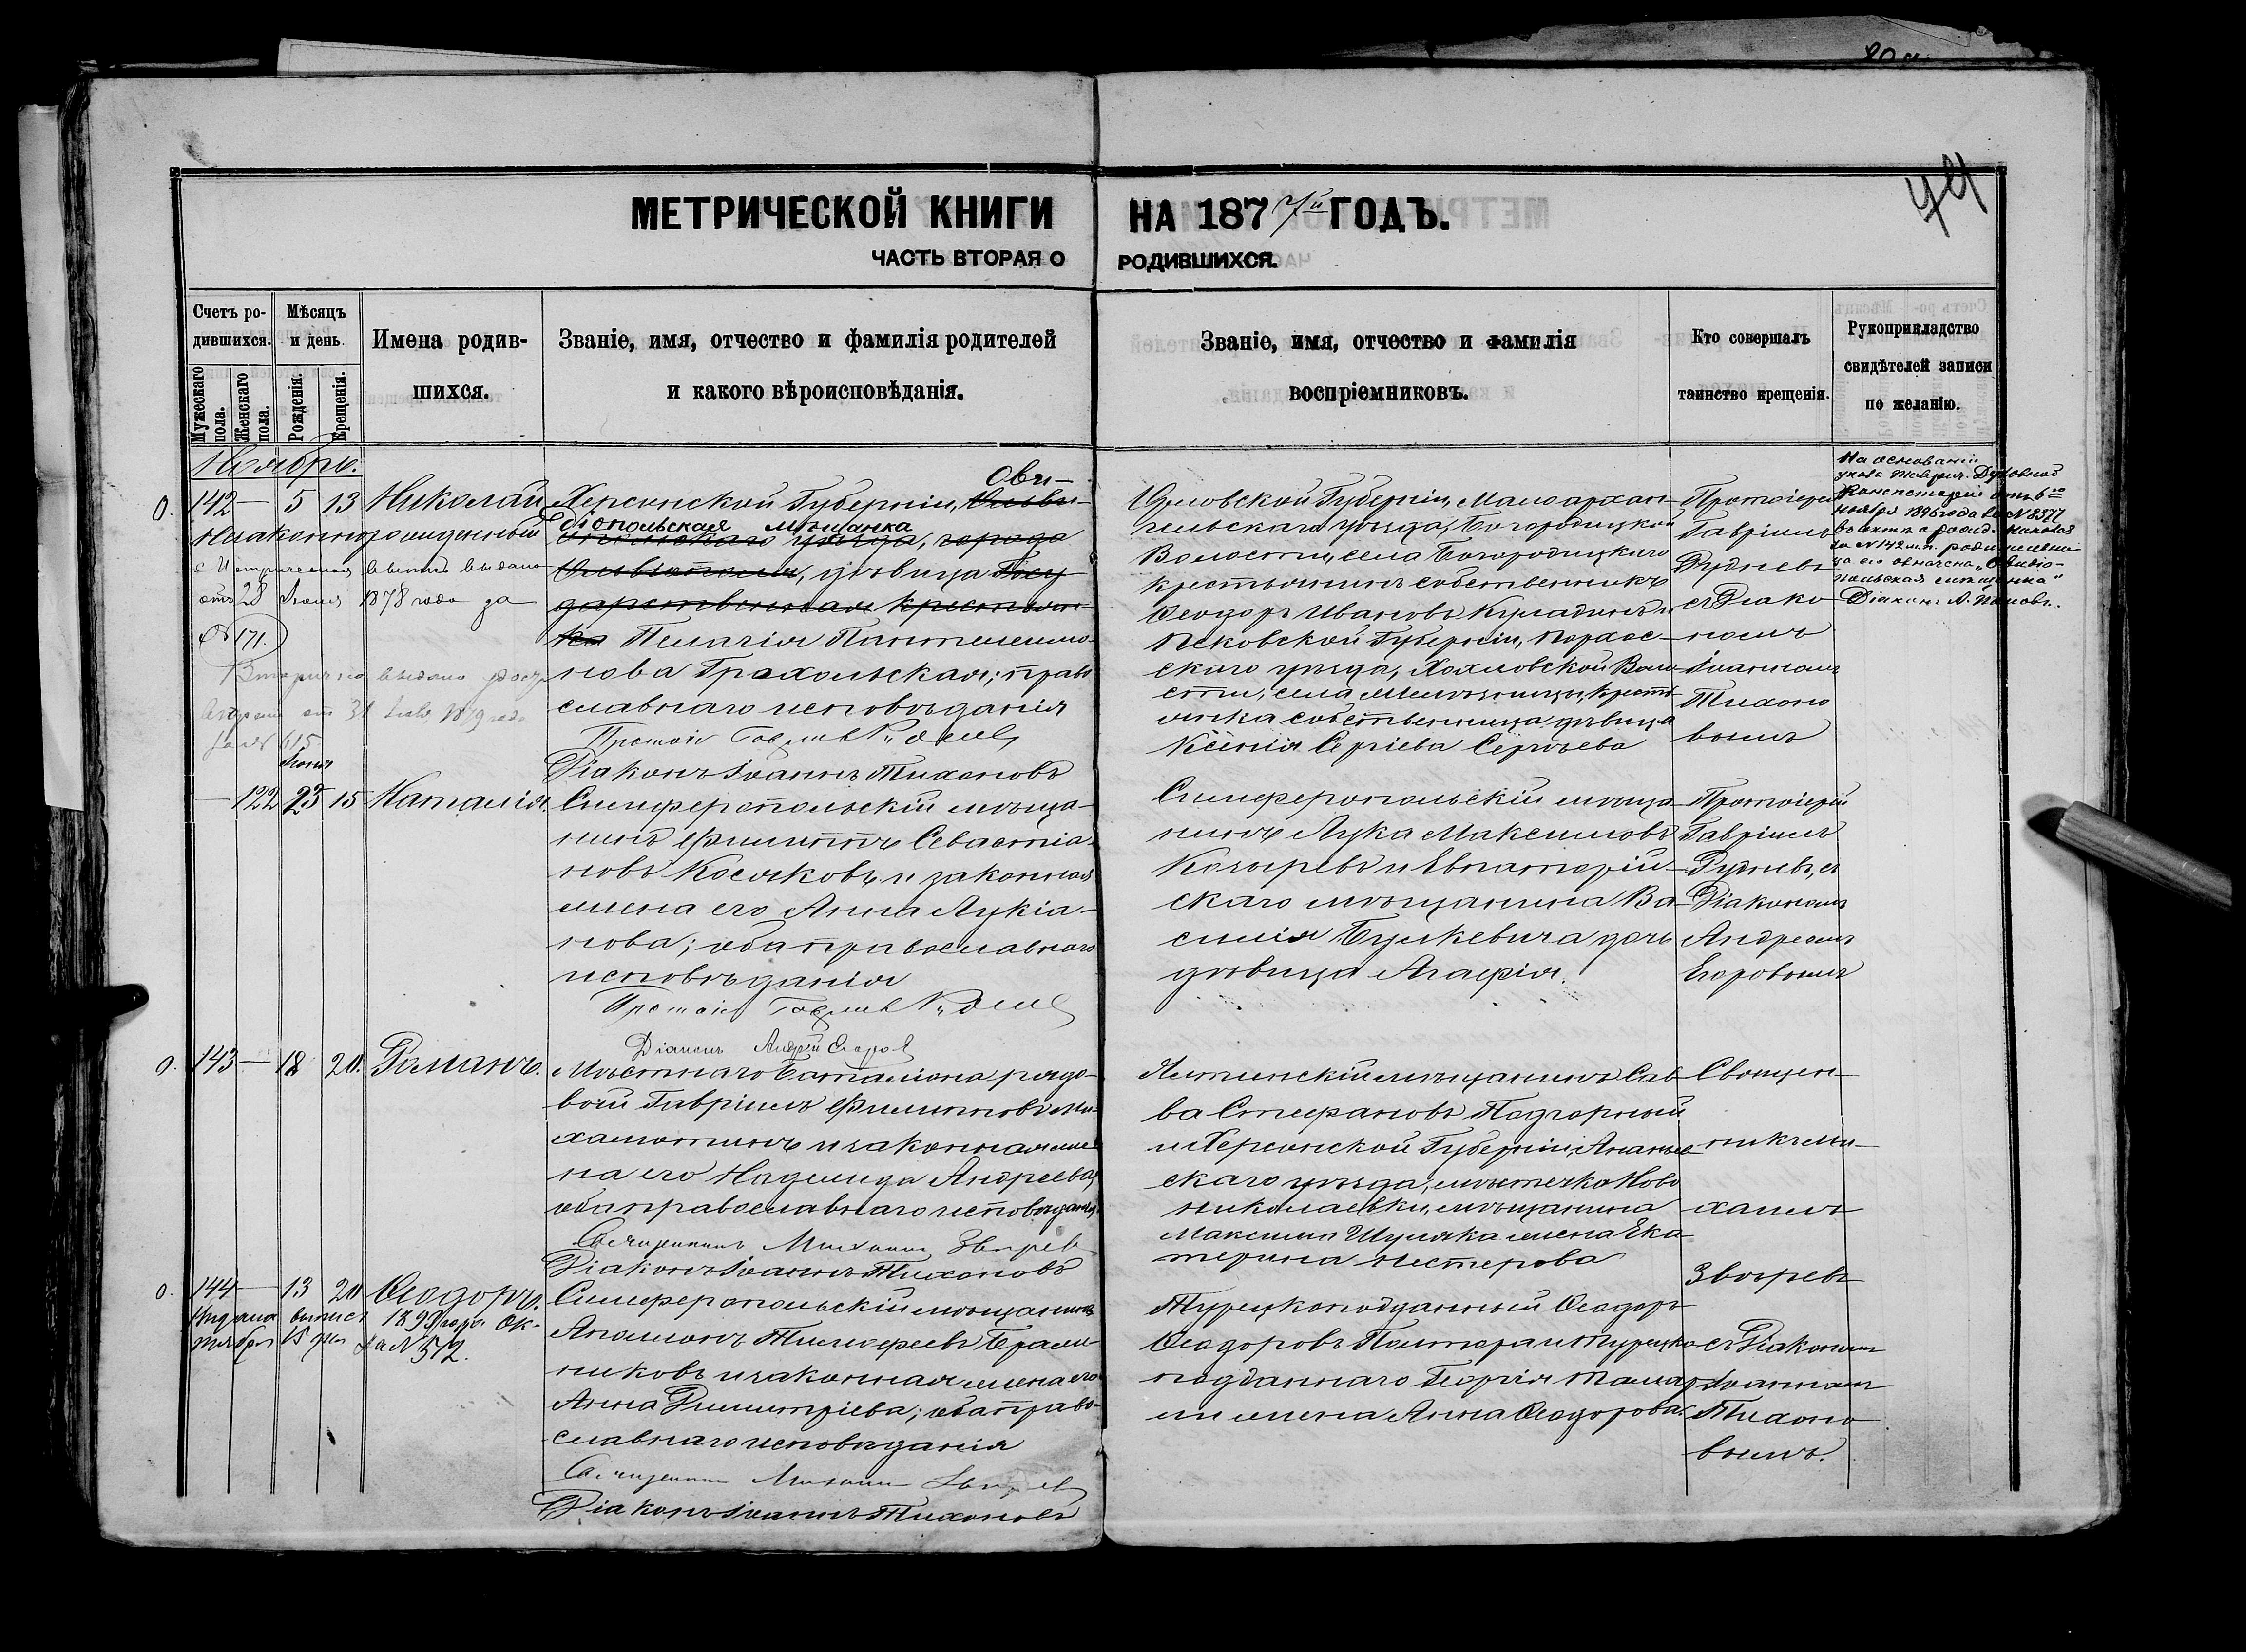 МЕТРИЧЕСКОЙ КНИГИ НА 1877й ГОДЪ.
ЧАСТЬ ВТОРАЯ О РОДИВШИХСЯ.
Счетъ ро-
дившихся.
Мужескаго пола.
Женскаго пола.
Мѣсяцъ
и день.
Рожденія.
Крещенія.
Имена родив-
шихся.
Званіе, имя, отчество и фамилія родителей
и какого вѣроисповѣданія.
Званіе, имя, отчество и фамилія
воспріемниковъ.
Кто совершалъ
таинство крещенія.
Рукоприкладство
свидѣтелей записи
по желанію.
Ноябрь.
142 — 5 13 Николай
незаконнорожденный
Метрическая выпись выдана
отъ 28 Іюля 1878 года за
№ 171.
Вторично выдано
615
Ови-
Херсонской Губерніи,
діопольская мѣщанка
уѣзда, города
дѣвица Госу
дарственная крестьян-
ка Пелагія Пантелеимо-
нова Грахольская; право
славнаго исповѣданія
Діаконъ Іоаннъ Тихоновъ
Орловской Губерніи, Малоархан-
гельскаго уѣзда, Богородицкой
Волости, села Богородицкаго
крестьянинъ собственникъ
Ѳеодоръ Ивановъ Куладинъ и
Псковской Губерніи, Порхов-
скаго уѣзда, Хохловской Воло
сти, села крестья-
янка собственница дѣвица
Ксенія Сергіева Сергѣева
Протоіерей
Гавріилъ
Рудневъ
съ Діако
номъ
Іоанномъ
Тихоно
вымъ
На основаніи
указа Таврич. Духовной
Консисторіи отъ 6го
ноября 1896 года за № 8577
въ актѣ о рожд. Николая
за № 142 м.п. родительни-
ца его означена „Овидіо-
польская мѣщанка"
Діаконъ А. Поповъ.
Іюнь
— 122 23 15 Наталія.
Симферопольскій мѣща-
нинъ Филиппъ Севастіа-
новъ Косяковъ и законная
жена его Анна Лукіа-
нова; оба православнаго
исповѣданія
Діаконъ Андрей Егоровъ
Симферопольскій мѣща-
нинъ Лука Максимовъ
Козыревъ и Евпаторій-
скаго мѣщанина Ва-
силія Буцкевича дочь
дѣвица Агафія.
Протоіерей
Гавріилъ
Рудневъ, съ
Діакономъ
Андреемъ
Егоровымъ
143 — 18 20. Романъ.
Мѣстнаго Баталіона рядо-
вой Гавріилъ Филипповъ Ми-
халютинъ и законная же
на его Надежда Андреева,
оба православнаго исповѣданія.
Священникъ Михаилъ Звѣревъ
Діаконъ Іоаннъ Тихоновъ
мѣщанинъ Сав
ва Стефановъ Подгорный
и Херсонской Губерніи, Ананьев
скаго уѣзда, мѣстечка Ново
николаевки, мѣщанина
Максима Шуляка жена Ека
терина Нестерова
Священ-
никъ Ми-
хаилъ
Звѣревъ
144 — 13 20 Ѳеодоръ.
Выдана выпись 1890 года Ок-
тября 15 дня за № 572.
Симферопольскій мѣщанинъ
Аполлонъ Тимофеевъ Брат-
никовъ и законная жена его
Анна Димитріева; оба право-
славнаго исповѣданія
Священникъ Михаилъ Звѣревъ
Діаконъ Іоаннъ Тихоновъ
Турецкоподданный Ѳеодоръ
Ѳеодоровъ и Турецко
подданнаго Георгія
жена Анна Ѳеодорова.
съ Діакономъ
Іоанномъ
Тихоно
вымъ.